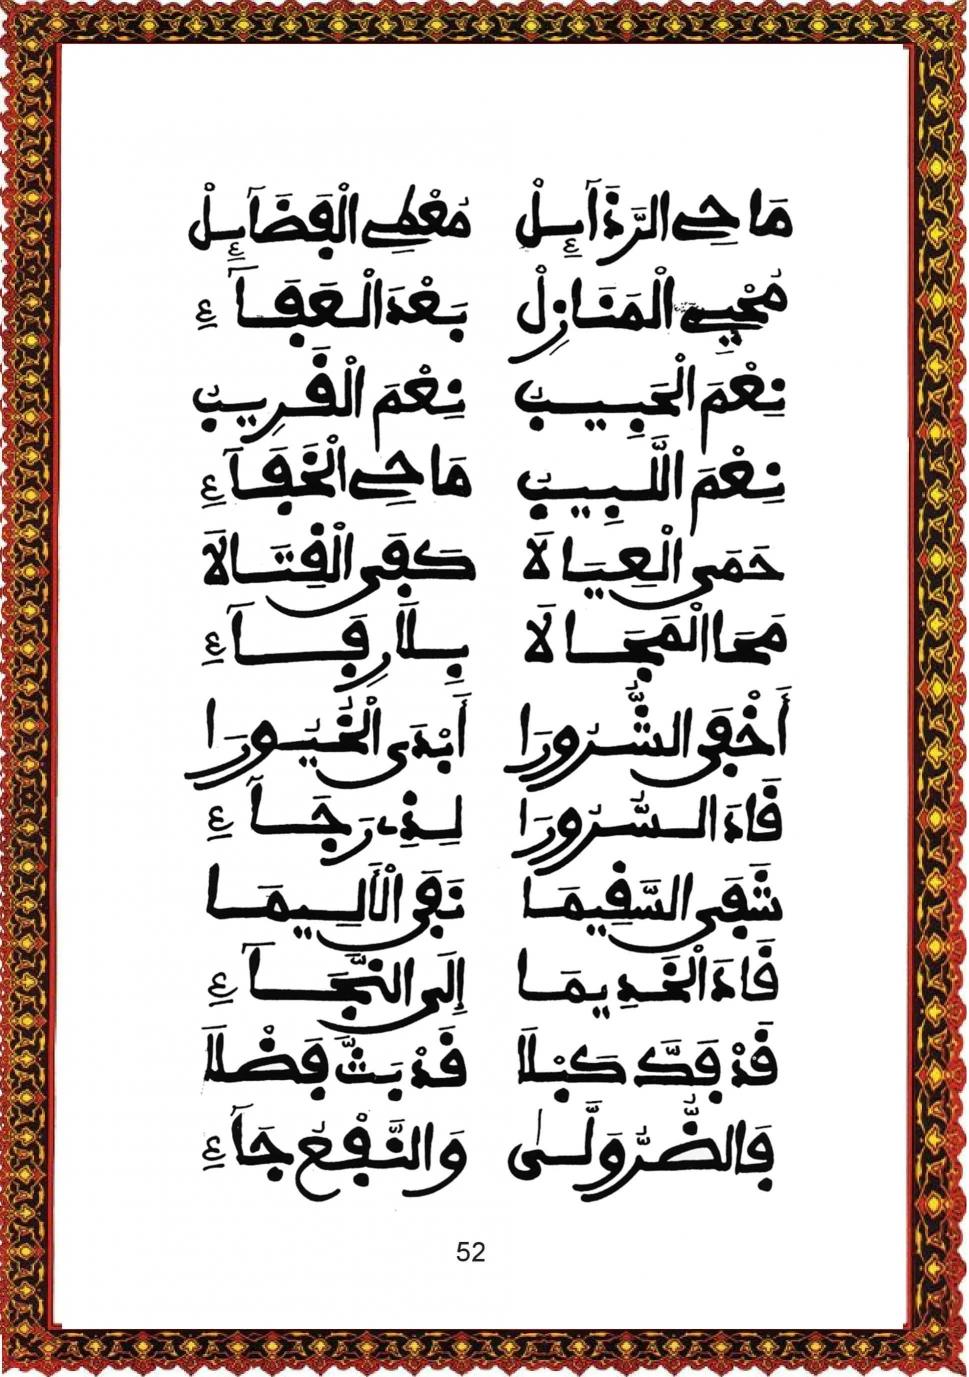 مَاحِي الرَّذَآئِلْ مُعْطِي الْفَضَآئِلْ
مُحْيِي الْمَنَازِلْ بَعْدَ الْعَفَآءِ
نِعْمَ الْحَبِيبُ نِعْمَ الْقَرِيبُ
نِعْمَ اللَّبِيبُ مَاحِي الْخَفَآءِ
حَمَى الْعِيَالَا كَفَى الْقِتَالَا
مَحَا الْمَجَالَا بِلَا رِفَآءِ
أَخْفَى الشُّرُورَا أَبْدَى الْخُيُورَا
قَادَ السُّرُورَا لِذِي رَجَآءِ
شَفَى السَّقِيمَا نَفَى الْأَلِيمَا
قَادَ الْخَدِيمَا إِلَى النَّجَآءِ
قَدْ فَكَّ كَبْلَا قَدْ بَثَّ فَضْلَا
فَالضُّرُّ وَلَّى وَالنَّفْعُ جَآءِ
52